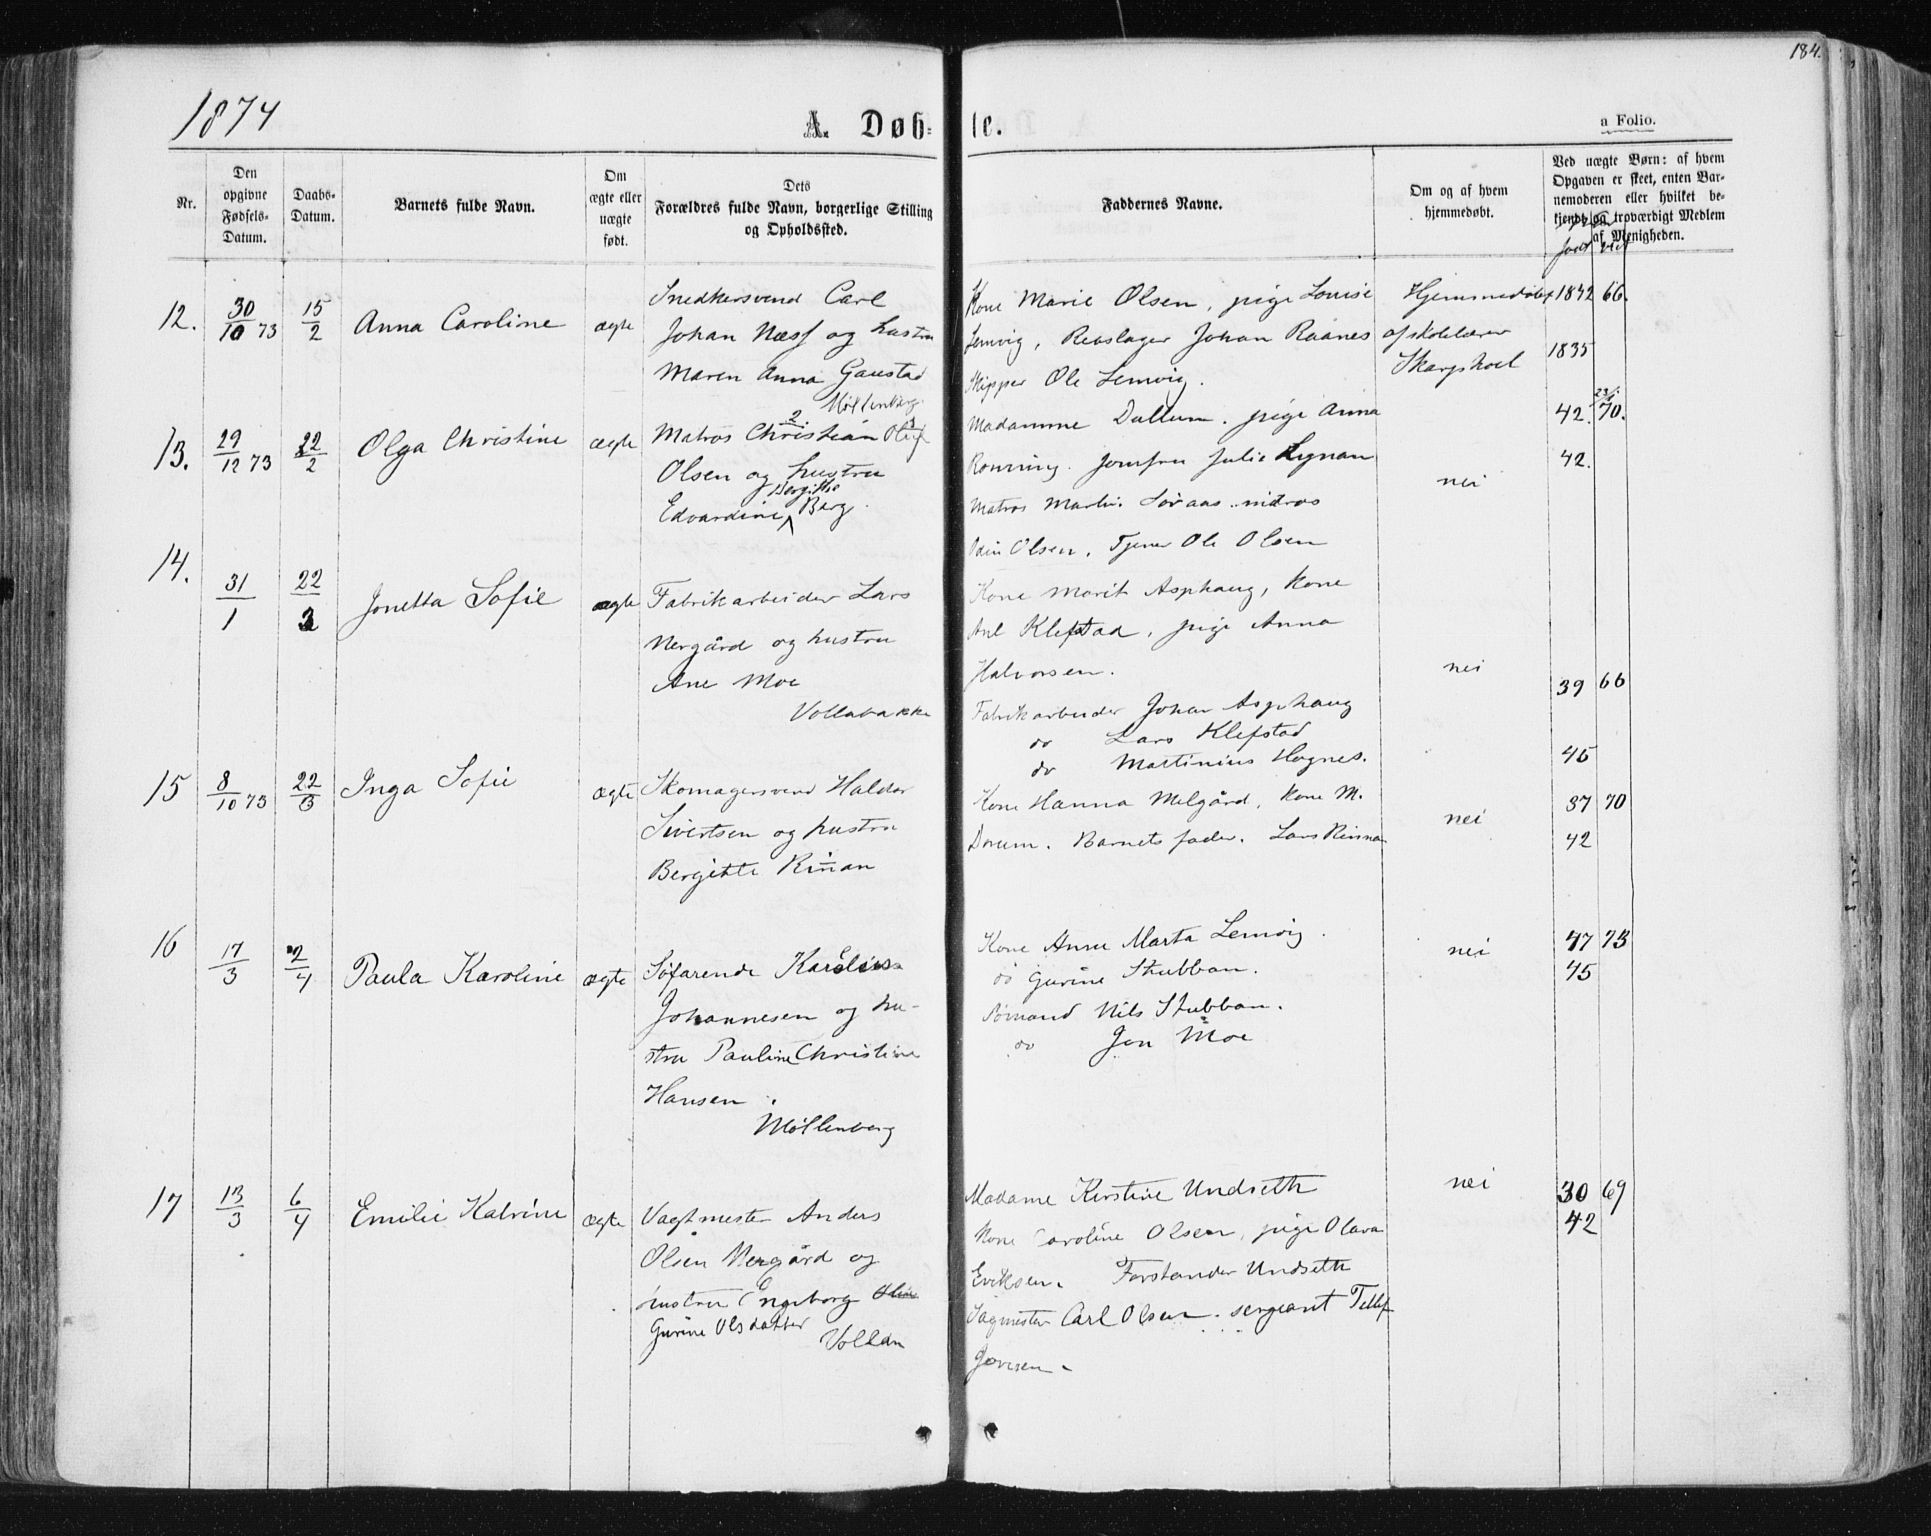 184.
1874
A. Døb=
te.
a Folio.
Nr.
Den
opgivne
Fødsels-
Datum.
Daabs-
Datum.
Barnets fulde Navn.
Om
ægte eller
uægte
født.
Dets
Forældres fulde Navn, borgerlige Stilling
og Opholdssted.
Faddernes Navne.
Om og af hvem
hjemmedøbt.
Ved uægte Børn: af hvem
Opgaven er skeet, enten Bar-
nemoderen eller hvilket be-
kjendt og troværdigt Medlem
af Menigheden.
12.
30/10 73
15/2
Anna Caroline
ægte
Snedkersvend Carl
Johan Næss og hustru
Maren Anna Gaustad
Møllenberg
Kone Marie Olsen, pige Louise
Lemvig, Rebslager Johan Raanes
Skipper Ole Lemvig.
Hjemmedøbt
af skolelærer
Skarphoel
1842 66.
1835
13.
29/12 73
22/2
Olga Christine
ægte
Matros Christian Oluf
Olsen og hustru
Edvardine Bergitte Berg.
Madamme Dullum. pige Anna
Rønning. Jomfru Julie Lynan
Matros Martin Søraas matros
Odin Olsen, Tjener Ole Olsen
nei
42. 70.
42.
14.
31/1
22/3
Jonetta Sofie
ægte
Fabrikarbeider Lars
Nergård og hustru
Ane Moe
Vollabakke
Kone Marit Asphaug, Kone
Ane Klefstad, pige Anna
Halvorsen.
Fabrikarbeider Johan Asphaug
do Lars Klefstad
do Martinius Hognes.
nei
39 66
45
15
8/10 73
22/3
Inga Sofie
ægte
Skomagersvend Haldor
Sivertsen og hustru
Bergitte Rinan
Kone Hanna Melgård, Kone M.
Dorum. Barnets fader. Lars Rinnan
nei
37 70
42
16
17/3
2/4
Paula Karoline
ægte
Søfarende Karelius
Johannesen og hu-
stru Pauline Christine
Hansen.
Møllenberg
Kone Anne Marta Lemvig.
do Gurine Stubban.
Sømand Nils Stubban.
do Jon Moe
nei
47 73
45
17
13/3
6/4
Emilie Katrine
ægte
Vagtmester Anders
Olsen Nergård og
hustru Engeborg Olin
Gurine Olsdatter
Vollan
Madame Kirstine Undseth
Kone Caroline Olsen, pige Olava
Eriksen. Forstander Undseth
Vagmester Carl Olsen. sergeant Tellef
nei
30 69
42